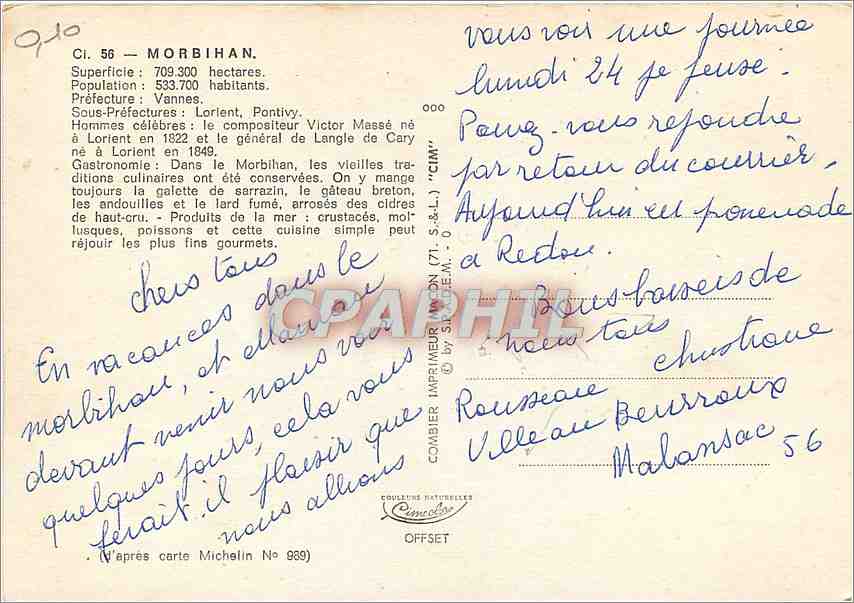 0,10
Ci. 56 — MORBIHAN.
Superficie : 709.300 hectares.
Population : 533.700 habitants.
Préfecture : Vannes.
Sous-Préfectures : Lorient, Pontivy.
Hommes célèbres : le compositeur Victor Massé né
à Lorient en 1822 et le général de Langle de Cary
né à Lorient en 1849.
Gastronomie : Dans le Morbihan, les vieilles tra-
ditions culinaires ont été conservées. On y mange
toujours la galette de sarrazin, le gâteau breton,
les andouilles et le lard fumé, arrosés des cidres
de haut-cru. - Produits de la mer : crustacés, mol-
lusques, poissons et cette cuisine simple peut
réjouir les plus fins gourmets.
chers tous
En vacances dans le
morbihan, et Maman
devant venir nous voir
quelques jours, cela vous
ferait il plaisir que
nous allions
(d'après carte Michelin No 989)
COMBIER IMPRIMEUR MACON (71. S.-&-L.) "CIM"
© by S.P.A.D.E.M. - 0
vous voir une journée
lundi 24 je pense.
Pouvez-vous répondre
par retour du courrier,
Aujourd'hui en promenade
a Redon.
Bons baisers de
nous tous
Christiane
Rousseau
Ville au Beurroux
Malansac 56
COULEURS NATURELLES
Cimcolor
OFFSET
CPARPHIL